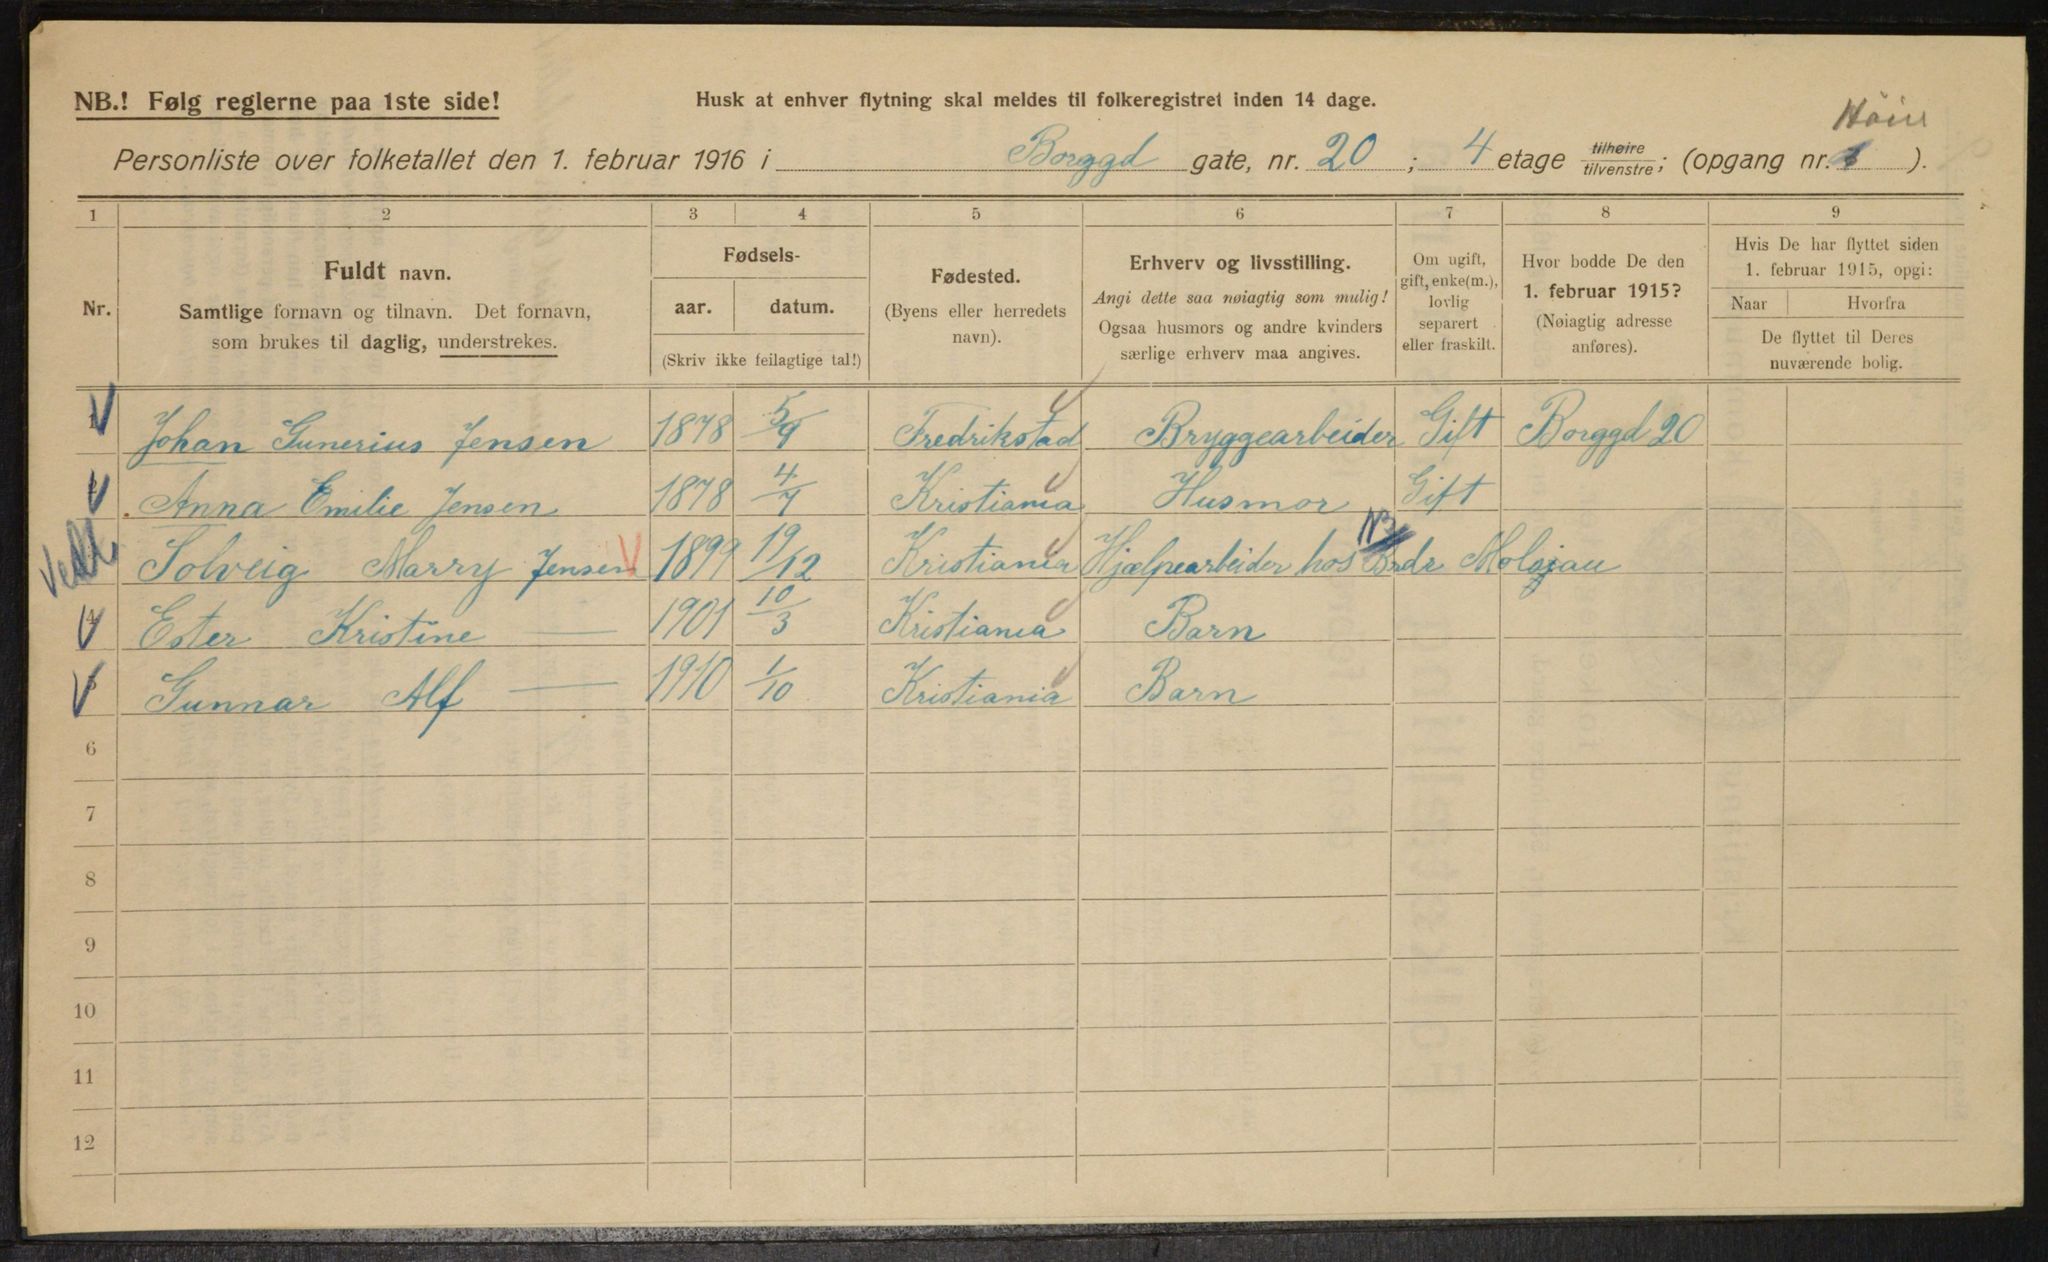 NB.! Følg reglerne paa 1ste side!
Husk at enhver flytning skal meldes til folkeregistret inden 14 dage.
Høire
Personliste over folketallet den 1. februar 1916 i Borggd gate, nr. 20 ; 4 etage tilhøire tilvenstre ; (opgang nr. ).
1 2 3 4 5 6 7 8 9
Nr.
Fuldt navn.
Samtlige fornavn og tilnavn. Det fornavn,
som brukes til daglig, understrekes.
Fødsels-
aar. datum.
(Skriv ikke feilagtige tal!)
Fødested.
(Byens eller herredets
navn).
Erhverv og livsstilling.
Angi dette saa nøiagtig som mulig!
Ogsaa husmors og andre kvinders
særlige erhverv maa angives.
Om ugift,
gift, enke(m.),
lovlig
separert
eller fraskilt.
Hvor bodde De den
1. februar 1915?
(Nøiagtig adresse
anføres).
Hvis De har flyttet siden
1. februar 1915, opgi:
Naar Hvorfra
De flyttet til Deres
nuværende bolig.
1 Johan Gunerius Jensen 1878 5/9 Fredrikstad Bryggearbeider Gift Borggd 20
2 Anna Emilie Jensen 1878 4/7 Kristiania Husmor Gift
Solveig Marry Jensen 1899 19/12 Kristiania Hjælpearbeider hos Brdr
4 Ester Kristine — 1901 10/3 Kristiania Barn
5 Gunnar Alf — 1910 1/10 Kristiania Barn
6
7
8
9
10
11
12